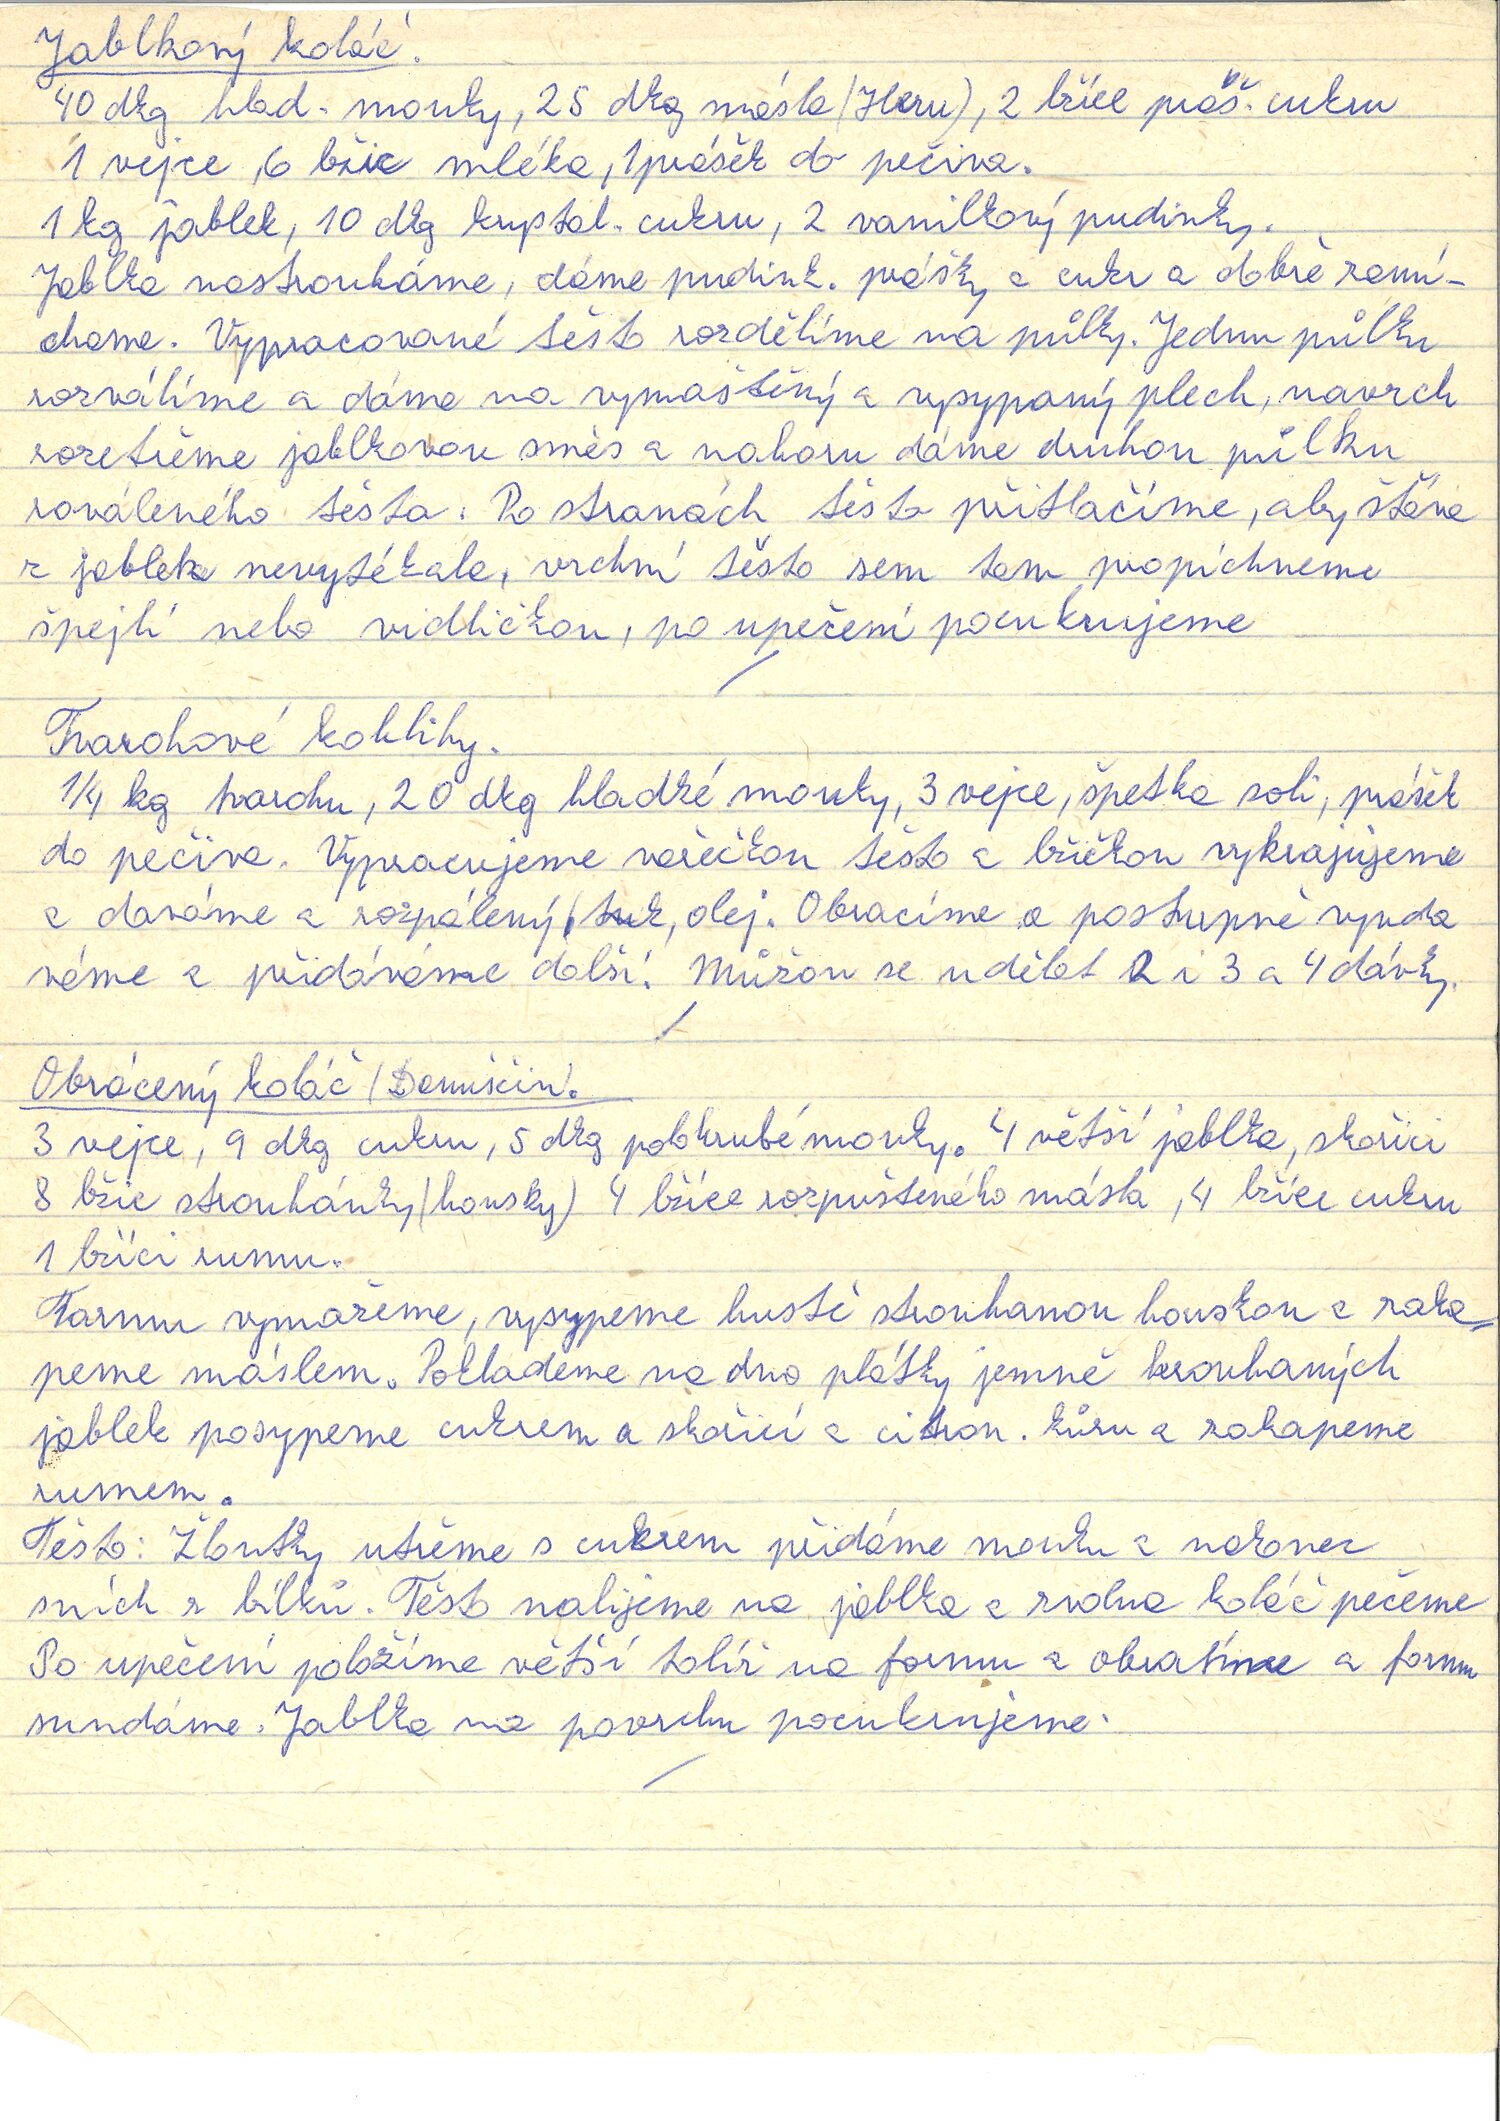 Jablkový koláč.
40 dkg hlad. mouky, 25 dkg másla (Heru), 2 lžíce práš. cukru
1 vejce, 6 lžic mléka, 1 prášek do pečiva.
1 kg jablek, 10 dkg krystal. cukru, 2 vanilkový pudinky.
Jablka nastrouháme, dáme pudink. prášky a cukr a dobře zamí-
cháme. Vypracované těsto rozdělíme na půlky. Jednu půlku
rozválíme a dáme na vymaštěný a vysypaný plech, navrch
rozetřeme jablkovou směs a nahoru dáme druhou půlku
rováleného těsta. Po stranách těsto přitlačíme, aby šťáva
z jablek nevytékala, vrchní těsto sem tam propíchneme
špejlí nebo vidličkou, po upečení pocukrujeme
Tvarohové koblihy.
1/4 kg tvarohu, 20 dkg hladké mouky, 3 vejce, špetka soli, prášek
do pečiva. Vypracujeme vařečkou těsto a lžičkou vykrajujeme
a daváme a rozpálený tuk, olej. Obracíme a postupně vynda
váme a přidáváme další. Můžou se udělat 2 i 3 a 4 dávky.
Obrácený koláč (Domiščin).
3 vejce, 9 dkg cukru, 5 dkg polohrubé mouky. 4 větší jablka, skořici
8 lžic strouhánky (housky) 4 lžíce rozpuštěného másla, 4 lžíce cukru
1 lžíci rumu.
Formu vymažeme, vysypeme hustě strouhanou houskou a zaka=
peme máslem. Poklademe na dno plátky jemně krouhaných
jablek posypeme cukrem a skořicí a citron. kůru a zakapeme
rumem.
Těsto: Žloutky utřeme s cukrem přidáme mouku a nakonec
sních z bílků. Těsto nalijeme na jablka a zvolna koláč pečeme
Po upečení položíme větší talíř na formu a obratíme a formu
sundáme. Jablka na povrchu pocukrujeme.